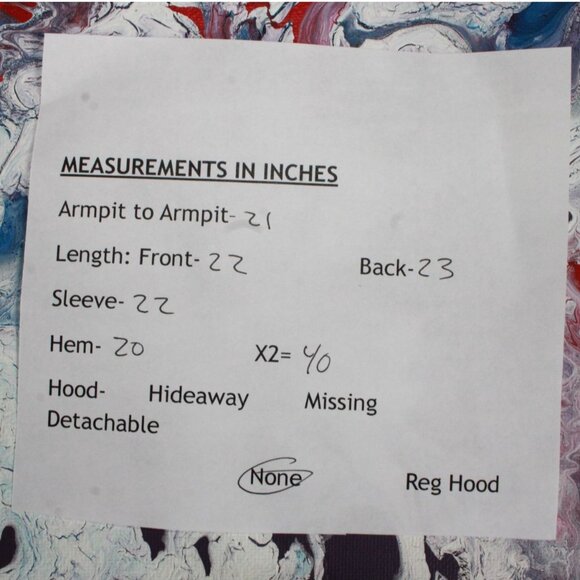 MEASUREMENTS IN INCHES
Armpit to Armpit- 21
Length: Front- 22 Back- 23
Sleeve- 22
Hem- 20 X2= 40
Hood- Hideaway Missing
Detachable
None Reg Hood